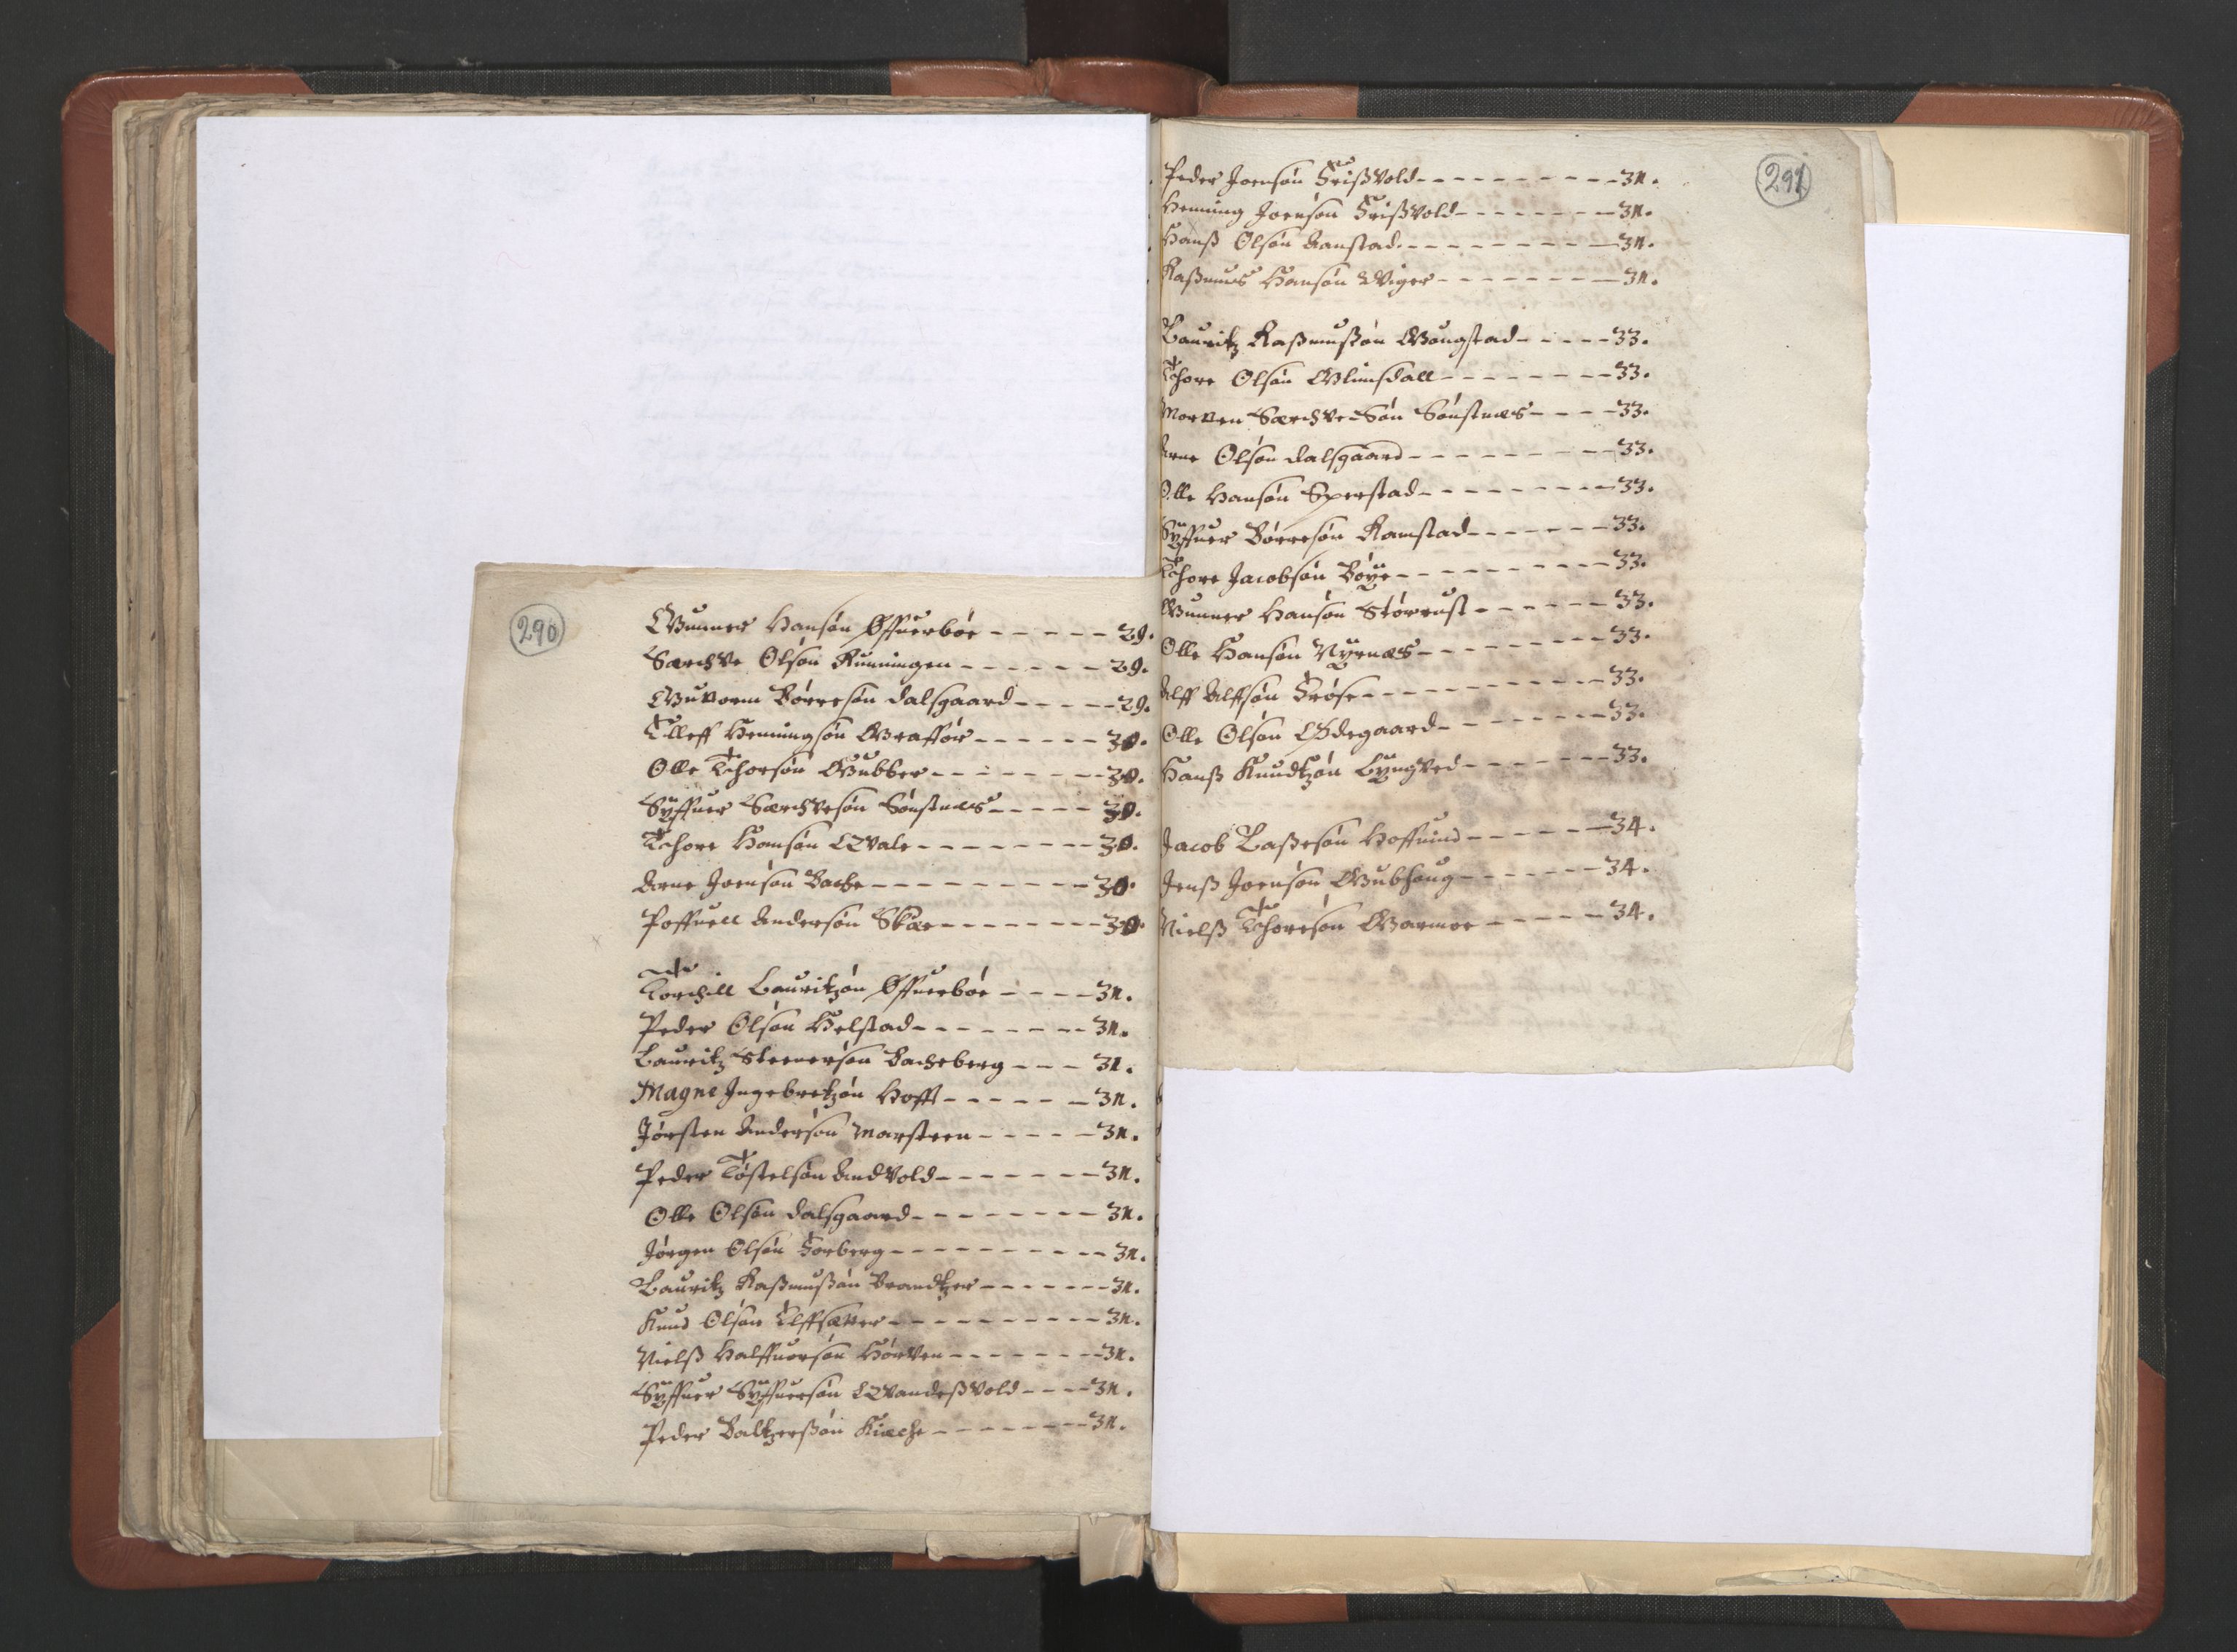 290
Gunner Hansøn Øffuerbøe - - - - - 29.
Særchve Olsøn Running en - - - - - - 29.
Gutorm Børresøn Dalsgaard - - - - - 29.
Elleff Henningsøn Graffør - - - - - - 30.
Olle Thorsøn Gubber - - - - - - - 30.
Syffuer Særchvesøn Sønstnæs - - - - - 30.
Thore Hansøn Qvale - - - - - - - - 30.
Arne Joensøn Bache - - - - - - - - - 30.
Poffuell Andersøn Skær - - - - - - - - 30.
Torchill Lauritzøn Øffuerbøe - - - - 31.
Peder Olsøn Helstad - - - - - - - - 31.
Lauritz Steenersøn Bacheberg - - - 31.
Magne Ingebretzøn Hoff - - - - - - 31.
Jørsten Andersøn Marsteen - - - - - 31.
Peder Tostelsøn Andvold - - - - - - - 31.
Olle Olsøn Dalsgaard - - - - - - - - 31.
Jørgen Olsøn Forberg - - - - - - - - - - 31.
Lauritz Raßmußøn Brandtzer - - - - - - - 31.
Knud Olsøn Elffsætter - - - - - - - - - - 31.
Nielß Halffuorsøn Hørven - - - - - - - - 31.
Syffuer Syffuersøn Qvandeßvold - - - - 31.
Peder Baltzerßøn Kirche - - - - - - - - 31.
291
Peder Joensøn Frißvold - - - - - - - - - - 31.
Henning Joensøn Frißvold - - - - - - - - 31.
Hanß Olsøn Aanstad - - - - - - - - - - 31.
Raßmus Hansøn Wiger - - - - - - - - 31.
Lauritz Raßmußøn Gaugstad - - - - - 33.
Thore Olsøn Glimsdall - - - - - - - - 33.
Morten Særchve-Søn Sønstnæs - - - - 33.
Arne Olsøn Dalsgaard - - - - - - - - - 33.
Olle Hansøn Sperstad - - - - - - - - - 33.
Syffuer Børresøn Ramstad - - - - - - - 33.
Thore Jacobsøn Bøye - - - - - - - - - - 33.
Gunner Hansøn Størrust - - - - - - 33.
Olle Hansøn Nyrnæs - - - - - - - - 33.
Alff Alffsøn Frøse - - - - - - - - - - - 33.
Olle Olsøn Ødegaard - - - - - - - - 33.
Hanß Knudtzøn Lyngved - - - - - - - 33.
Jacob Laßesøn Hoffuind - - - - - - 34.
Jenß Joensøn Gubhaug - - - - - - 34.
Nielß Thoresøn Garmoe - - - - - 34.